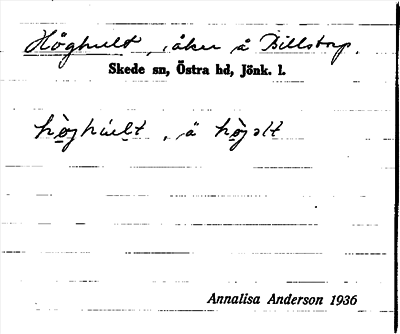 Höghult, åker å Billstorp.
Skede sn, Östra hd, Jönk. l.
hö̀ghúlt, ä hö̀gɔlt
Annalisa Anderson 1936